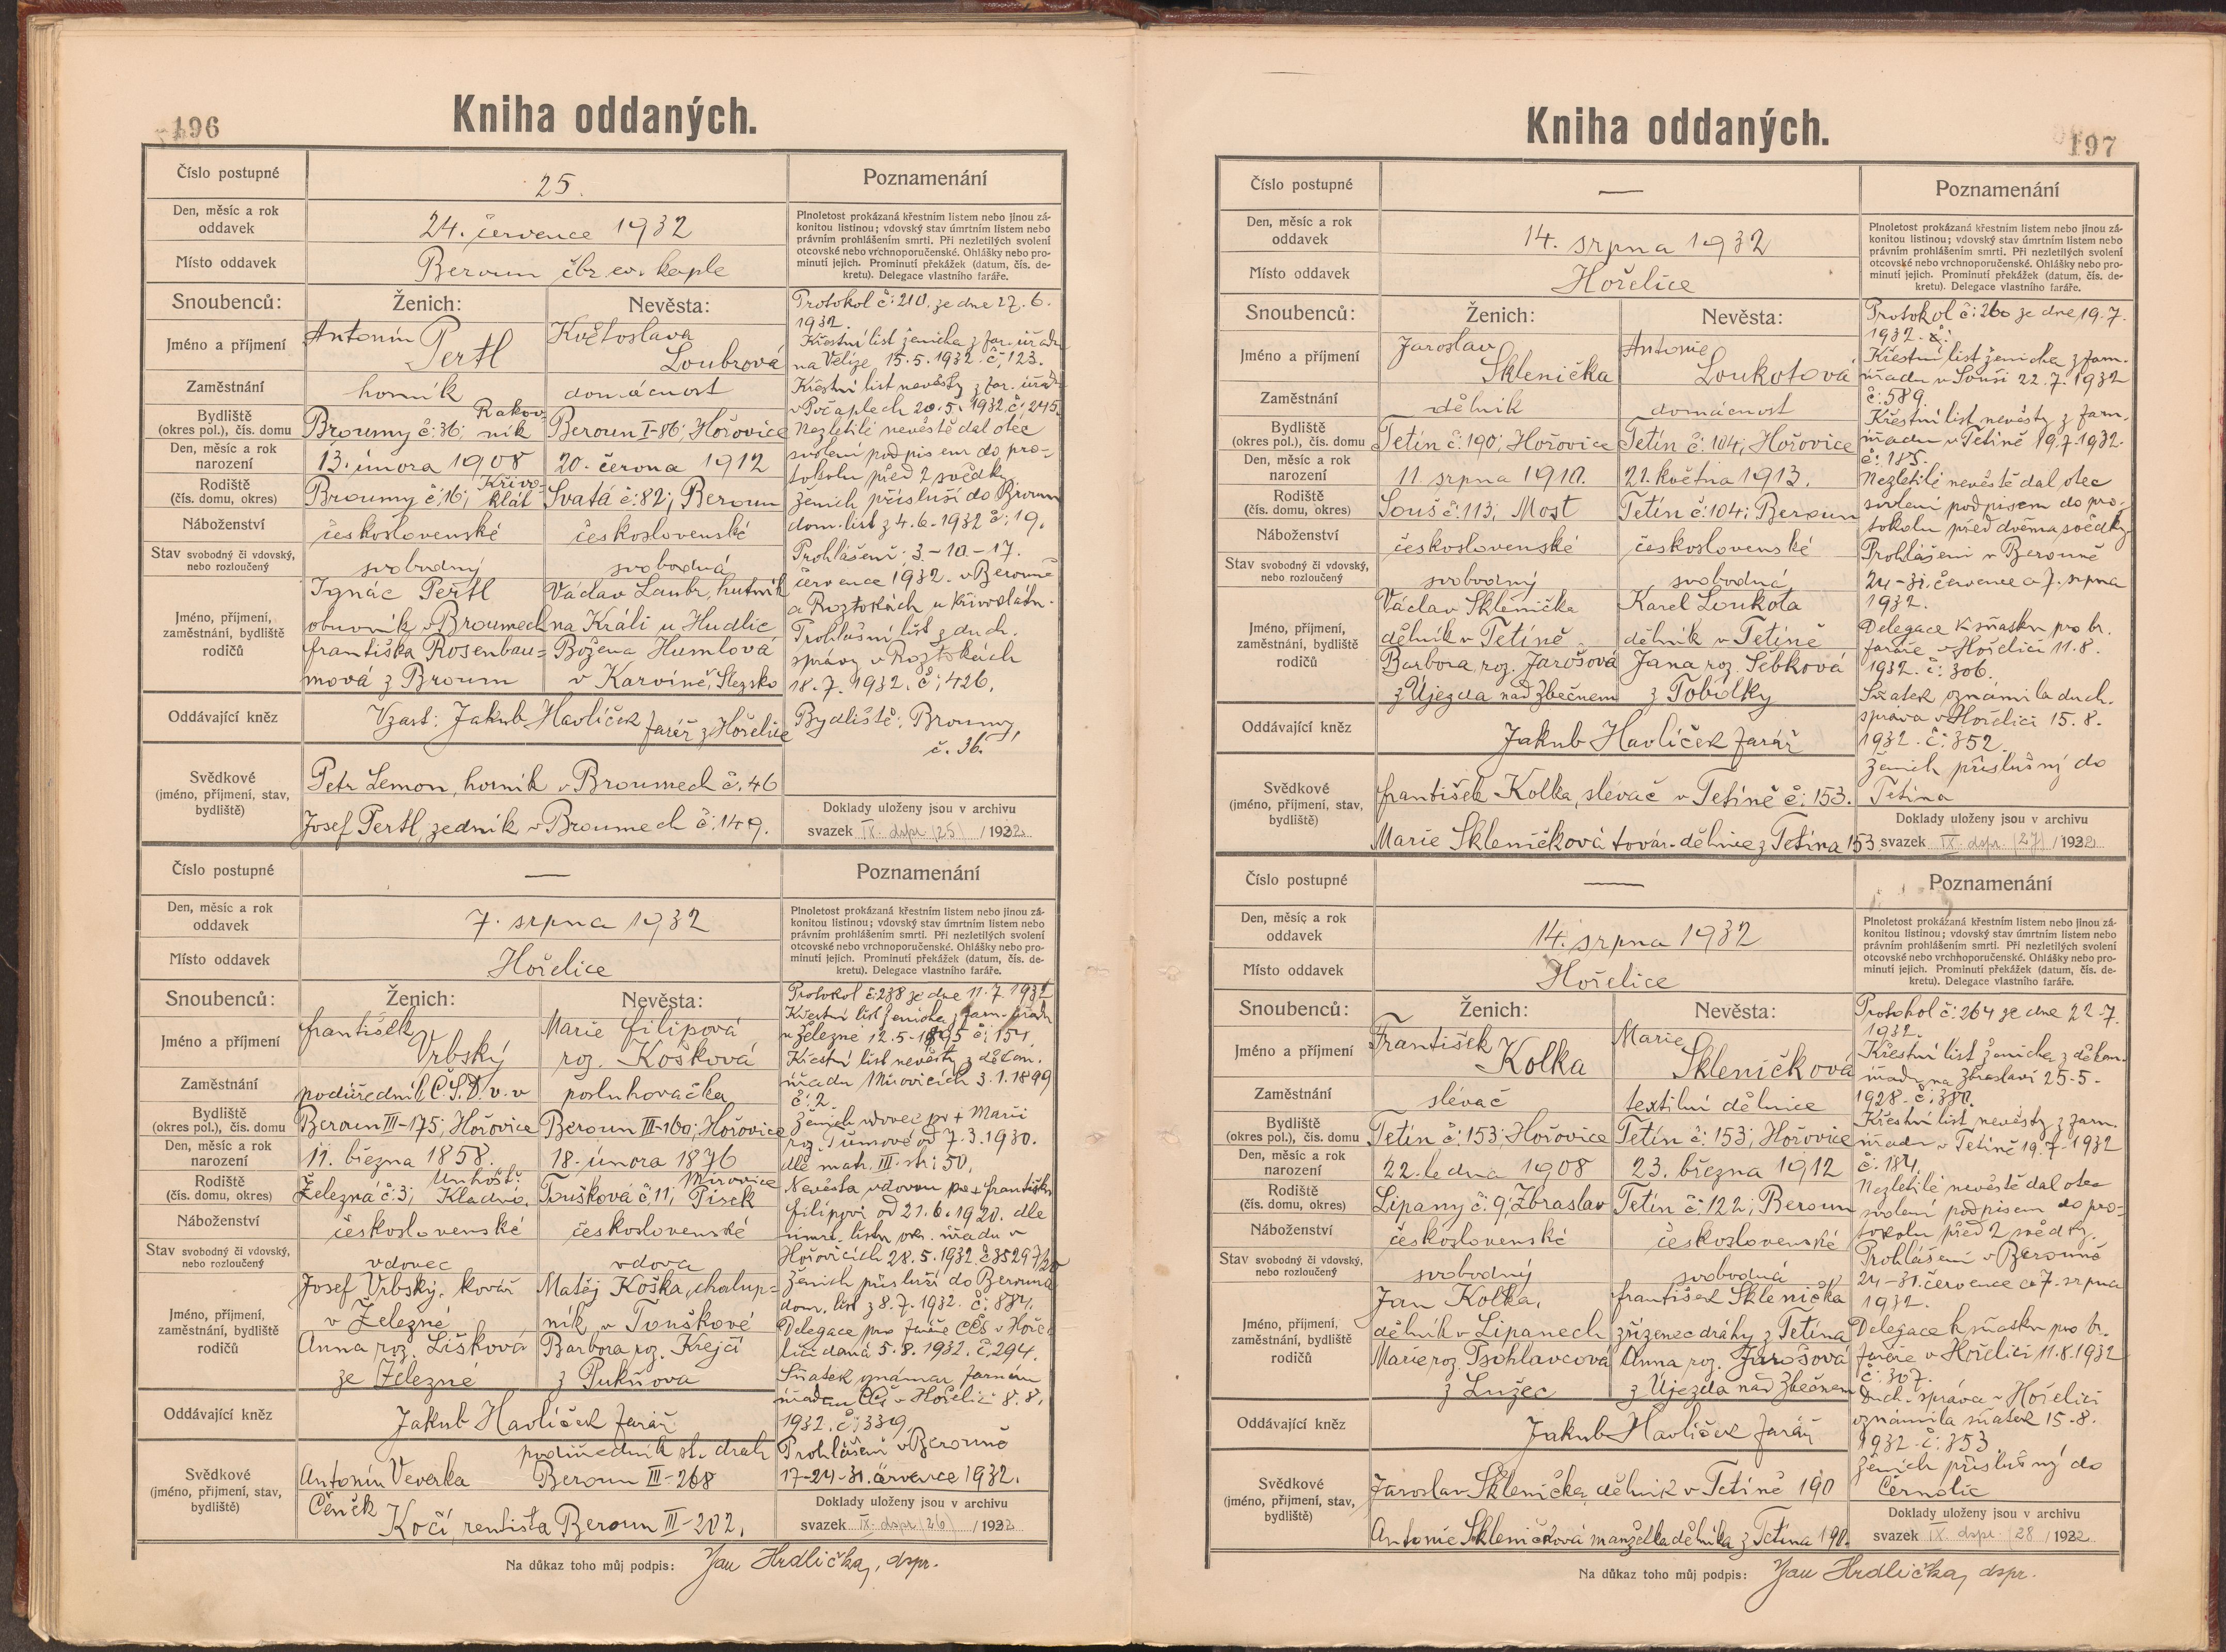 196
Kniha oddaných.
Číslo postupné
25.
Poznamenání
Den, měsíc a rok
oddavek
24. července 1932
Plnoletost prokázaná křestním listem nebo jinou zá-
konitou listinou; vdovský stav úmrtním listem nebo
právním prohlášením smrti. Při nezletilých svolení
otcovské nebo vrchnoporučenské. Ohlášky nebo pro-
minutí jejich. Prominutí překážek (datum, čís. de-
kretu). Delegace vlastního faráře.
Místo oddavek
Beroun čbr. ev. kaple
Snoubenců:
Ženich:
Nevěsta:
Jméno a příjmení
Antonín
Pertl
Květoslava
Loubrová
Zaměstnání
horník
domácnost
Bydliště
(okres pol.), čís. domu
Broumy č: 36; Rakov-
ník
Beroun I-86; Hořovice
Den, měsíc a rok
narození
13. února 1908
20. června 1912
Rodiště
(čís. domu, okres)
Broumy č: 16; Křivo-
klát
Svatá č: 82; Beroun
Náboženství
československé
československé
Stav svobodný či vdovský,
nebo rozloučený
svobodný
svobodná
Jméno, příjmení,
zaměstnání, bydliště
rodičů
Ignác Pertl
obuvník v Broumech
Františka Rosenbau=
mová z Broum
Václav Laubr, hutník
na Králi u Hudlic
Božena Humlová
v Karviné, Slezsko
Oddávající kněz
Vzast: Jakub Havlíček farář z Hořelice
Svědkové
(jméno, příjmení, stav,
bydliště)
Petr Lemon, horník v Broumech č. 46
Josef Pertl, zedník v Broumech č: 149.
Protokol č: 210. ze dne 27. 6.
1932.
Křestní list ženicha z far. úřadu
na Velíze 15. 5. 1932. č: 123.
Křestní list nevěsty z far. úřadu
v Počaplech 20. 5. 1932. č: 245.
Nezletilé nevěstě dal otec
svolení podpisem do pro-
tokolu před 2 svědky
Ženich přísluší do Broum
dom. list z 4. 6. 1932 č: 19.
Prohlášení: 3-10-17.
července 1932. v Berouně
a Roztokách u Křivoklátu.
Prohlášní list z duch.
správy v Roztokách
18. 7. 1932. č: 426.
Bydliště: Broumy
č. 36.
Doklady uloženy jsou v archivu
svazek IX. dspr. (25) /1932
Číslo postupné
—
Poznamenání
Den, měsíc a rok
oddavek
7. srpna 1932
Plnoletost prokázaná křestním listem nebo jinou zá-
konitou listinou; vdovský stav úmrtním listem nebo
právním prohlášením smrti. Při nezletilých svolení
otcovské nebo vrchnoporučenské. Ohlášky nebo pro-
minutí jejich. Prominutí překážek (datum, čís. de-
kretu). Delegace vlastního faráře.
Místo oddavek
Hořelice
Snoubenců:
Ženich:
Nevěsta:
Jméno a příjmení
František
Vrbský
Marie Filipová
roz. Košková
Zaměstnání
podúředník Č.S.D. v. v
posluhovačka
Bydliště
(okres pol.), čís. domu
Beroun III-175; Hořovice
Beroun III-160; Hořovice
Den, měsíc a rok
narození
11. března 1858.
18. února 1876
Rodiště
(čís. domu, okres)
Železná č: 3; Unhošť.
Kladno.
Toušková č: 11; Mirovice
Písek
Náboženství
československé
československé
Stav svobodný či vdovský,
nebo rozloučený
vdovec
vdova
Jméno, příjmení,
zaměstnání, bydliště
rodičů
Josef Vrbský, kovář
v Železné
Anna roz. Lišková
ze Železné
Matěj Koška, chalup-
ník v Touškové
Barbora roz. Krejčí
z Pukňova
Oddávající kněz
Jakub Havlíček farář
Svědkové
(jméno, příjmení, stav,
bydliště)
podúředník st. drah
Antonín Veverka Beroun III-268
Čeněk
Kočí, rentista Beroun III-202.
Protokol č: 238 ze dne 11. 7. 1932
Křestní list ženicha z farn. úřadu
u Železné 12. 5. 1895 č: 151.
Křestní list nevěsty z děkan.
úřadu Mirovicích 3. 1. 1899
č: 2
Ženich vdovec po + Marii
roz. Tůmové od 7. 3. 1930.
dle matr. III. str: 50.
Nevěsta vdovou po + Františku
Filipovi od 21. 6. 1920. dle
úmrt. listu okr. úřadu v
Hořovicích 28. 5. 1932. č 35297/20
Ženich přísluší do Berouna
dom. list z 8. 7. 1932. č: 884.
Delegace pro faráře CČS v Hoře-
lici daná 5. 8. 1932. č. 294.
Sňatek oznámen farním
úřadem CČS v Hořelici 8. 8.
1932. č: 339.
Prohlášení v Berouně
17-24-31. července 1932.
Doklady uloženy jsou v archivu
svazek IX. dspr. (26) /1932
Na důkaz toho můj podpis: Jan Hrdlička, dspr.
197
Kniha oddaných.
Číslo postupné
—
Poznamenání
Den, měsíc a rok
oddavek
14. srpna 1932
Plnoletost prokázaná křestním listem nebo jinou zá-
konitou listinou; vdovský stav úmrtním listem nebo
právním prohlášením smrti. Při nezletilých svolení
otcovské nebo vrchnoporučenské. Ohlášky nebo pro-
minutí jejich. Prominutí překážek (datum, čís. de-
kretu). Delegace vlastního faráře.
Místo oddavek
Hořelice
Snoubenců:
Ženich:
Nevěsta:
Jméno a příjmení
Jaroslav
Sklenička
Antonie
Loukotová
Zaměstnání
dělník
domácnost
Bydliště
(okres pol.), čís. domu
Tetín č: 190; Hořovice
Tetín č: 104; Hořovice
Den, měsíc a rok
narození
11. srpna 1910.
21. května 1913.
Rodiště
(čís. domu, okres)
Souš č: 113; Most
Tetín č: 104; Beroun
Náboženství
československé
československé
Stav svobodný či vdovský,
nebo rozloučený
svobodný
svobodná
Jméno, příjmení,
zaměstnání, bydliště
rodičů
Václav Sklenička
dělník v Tetíně
Barbora roz. Jarošová
z Újezda nad Zbečnem
Karel Loukota
dělník v Tetíně
Jana roz. Šebková
z Tobolky
Oddávající kněz
Jakub Havlíček farář
Svědkové
(jméno, příjmení, stav,
bydliště)
František Kolka, slévač v Tetíně č: 153.
Marie Skleničková továr. dělnice z Tetína 153
Protokol č: 260 ze dne 19. 7.
1932.
Křestní list ženicha z farn.
úřadu v Souši 22. 7. 1932
č: 589
Křestní list nevěsty z farn.
úřadu v Tetíně 19. 7. 1932.
č: 185.
Nezletilé nevěstě dal otec
svolení podpisem do pro-
tokolu před dvěma svědky
Prohlášení v Berouně
24-31. července a 7. srpna
1932.
Delegace k sňatku pro br.
faráře v Hořelici 11. 8.
1932. č: 306.
Sňatek oznámila duch.
správa v Hořelici 15. 8.
1932. č: 352.
Ženich příslušný do
Tetína
Doklady uloženy jsou v archivu
svazek IX. dspr. (27) /1932
Číslo postupné
—
Poznamenání
Den, měsíc a rok
oddavek
14. srpna 1932
Plnoletost prokázaná křestním listem nebo jinou zá-
konitou listinou; vdovský stav úmrtním listem nebo
právním prohlášením smrti. Při nezletilých svolení
otcovské nebo vrchnoporučenské. Ohlášky nebo pro-
minutí jejich. Prominutí překážek (datum, čís. de-
kretu). Delegace vlastního faráře.
Místo oddavek
Hořelice
Snoubenců:
Ženich:
Nevěsta:
Jméno a příjmení
František
Kolka
Marie
Skleničková
Zaměstnání
slévač
textilní dělnice
Bydliště
(okres pol.), čís. domu
Tetín č: 153; Hořovice
Tetín č: 153; Hořovice
Den, měsíc a rok
narození
22. ledna 1908
23. března 1912
Rodiště
(čís. domu, okres)
Lipany č: 9; Zbraslav
Tetín č: 122; Beroun
Náboženství
československé
československé
Stav svobodný či vdovský,
nebo rozloučený
svobodný
svobodná
Jméno, příjmení,
zaměstnání, bydliště
rodičů
Jan Kolka,
dělník v Lipanech
Marie roz. Pschlavcová
z Lužec
František Sklenička
zřízenec dráhy z Tetína
Anna roz. Jarošová
z Újezda nad Zbečnem
Oddávající kněz
Jakub Havlíček farář
Svědkové
(jméno, příjmení, stav,
bydliště)
Jaroslav Sklenička, dělník v Tetíně 190
Antonie Skleničková manželka dělníka z Tetína 190.
Protokol č: 264 ze dne 22. 7.
1932.
Křestní list ženicha z děkan.
úřadu na Zbraslavi 25. 5.
1928. č: 380.
Křestní list nevěsty z farn.
úřadu v Tetíně 19. 7. 1932
č: 184.
Nezletilé nevěstě dal otec
svolení podpisem do pro-
tokolu před 2 svědky.
Prohlášení v Berouně
24-31. července a 7. srpna
1932.
Delegace k sňatku pro br.
faráře v Hořelici 11. 8. 1932
č: 307.
Duch. správa v Hořelici
oznámila sňatek 15. 8.
1932. č: 353
Ženich příslušný do
Černolic
Doklady uloženy jsou v archivu
svazek IX. dspr. (28 /1932
Na důkaz toho můj podpis: Jan Hrdlička, dspr.